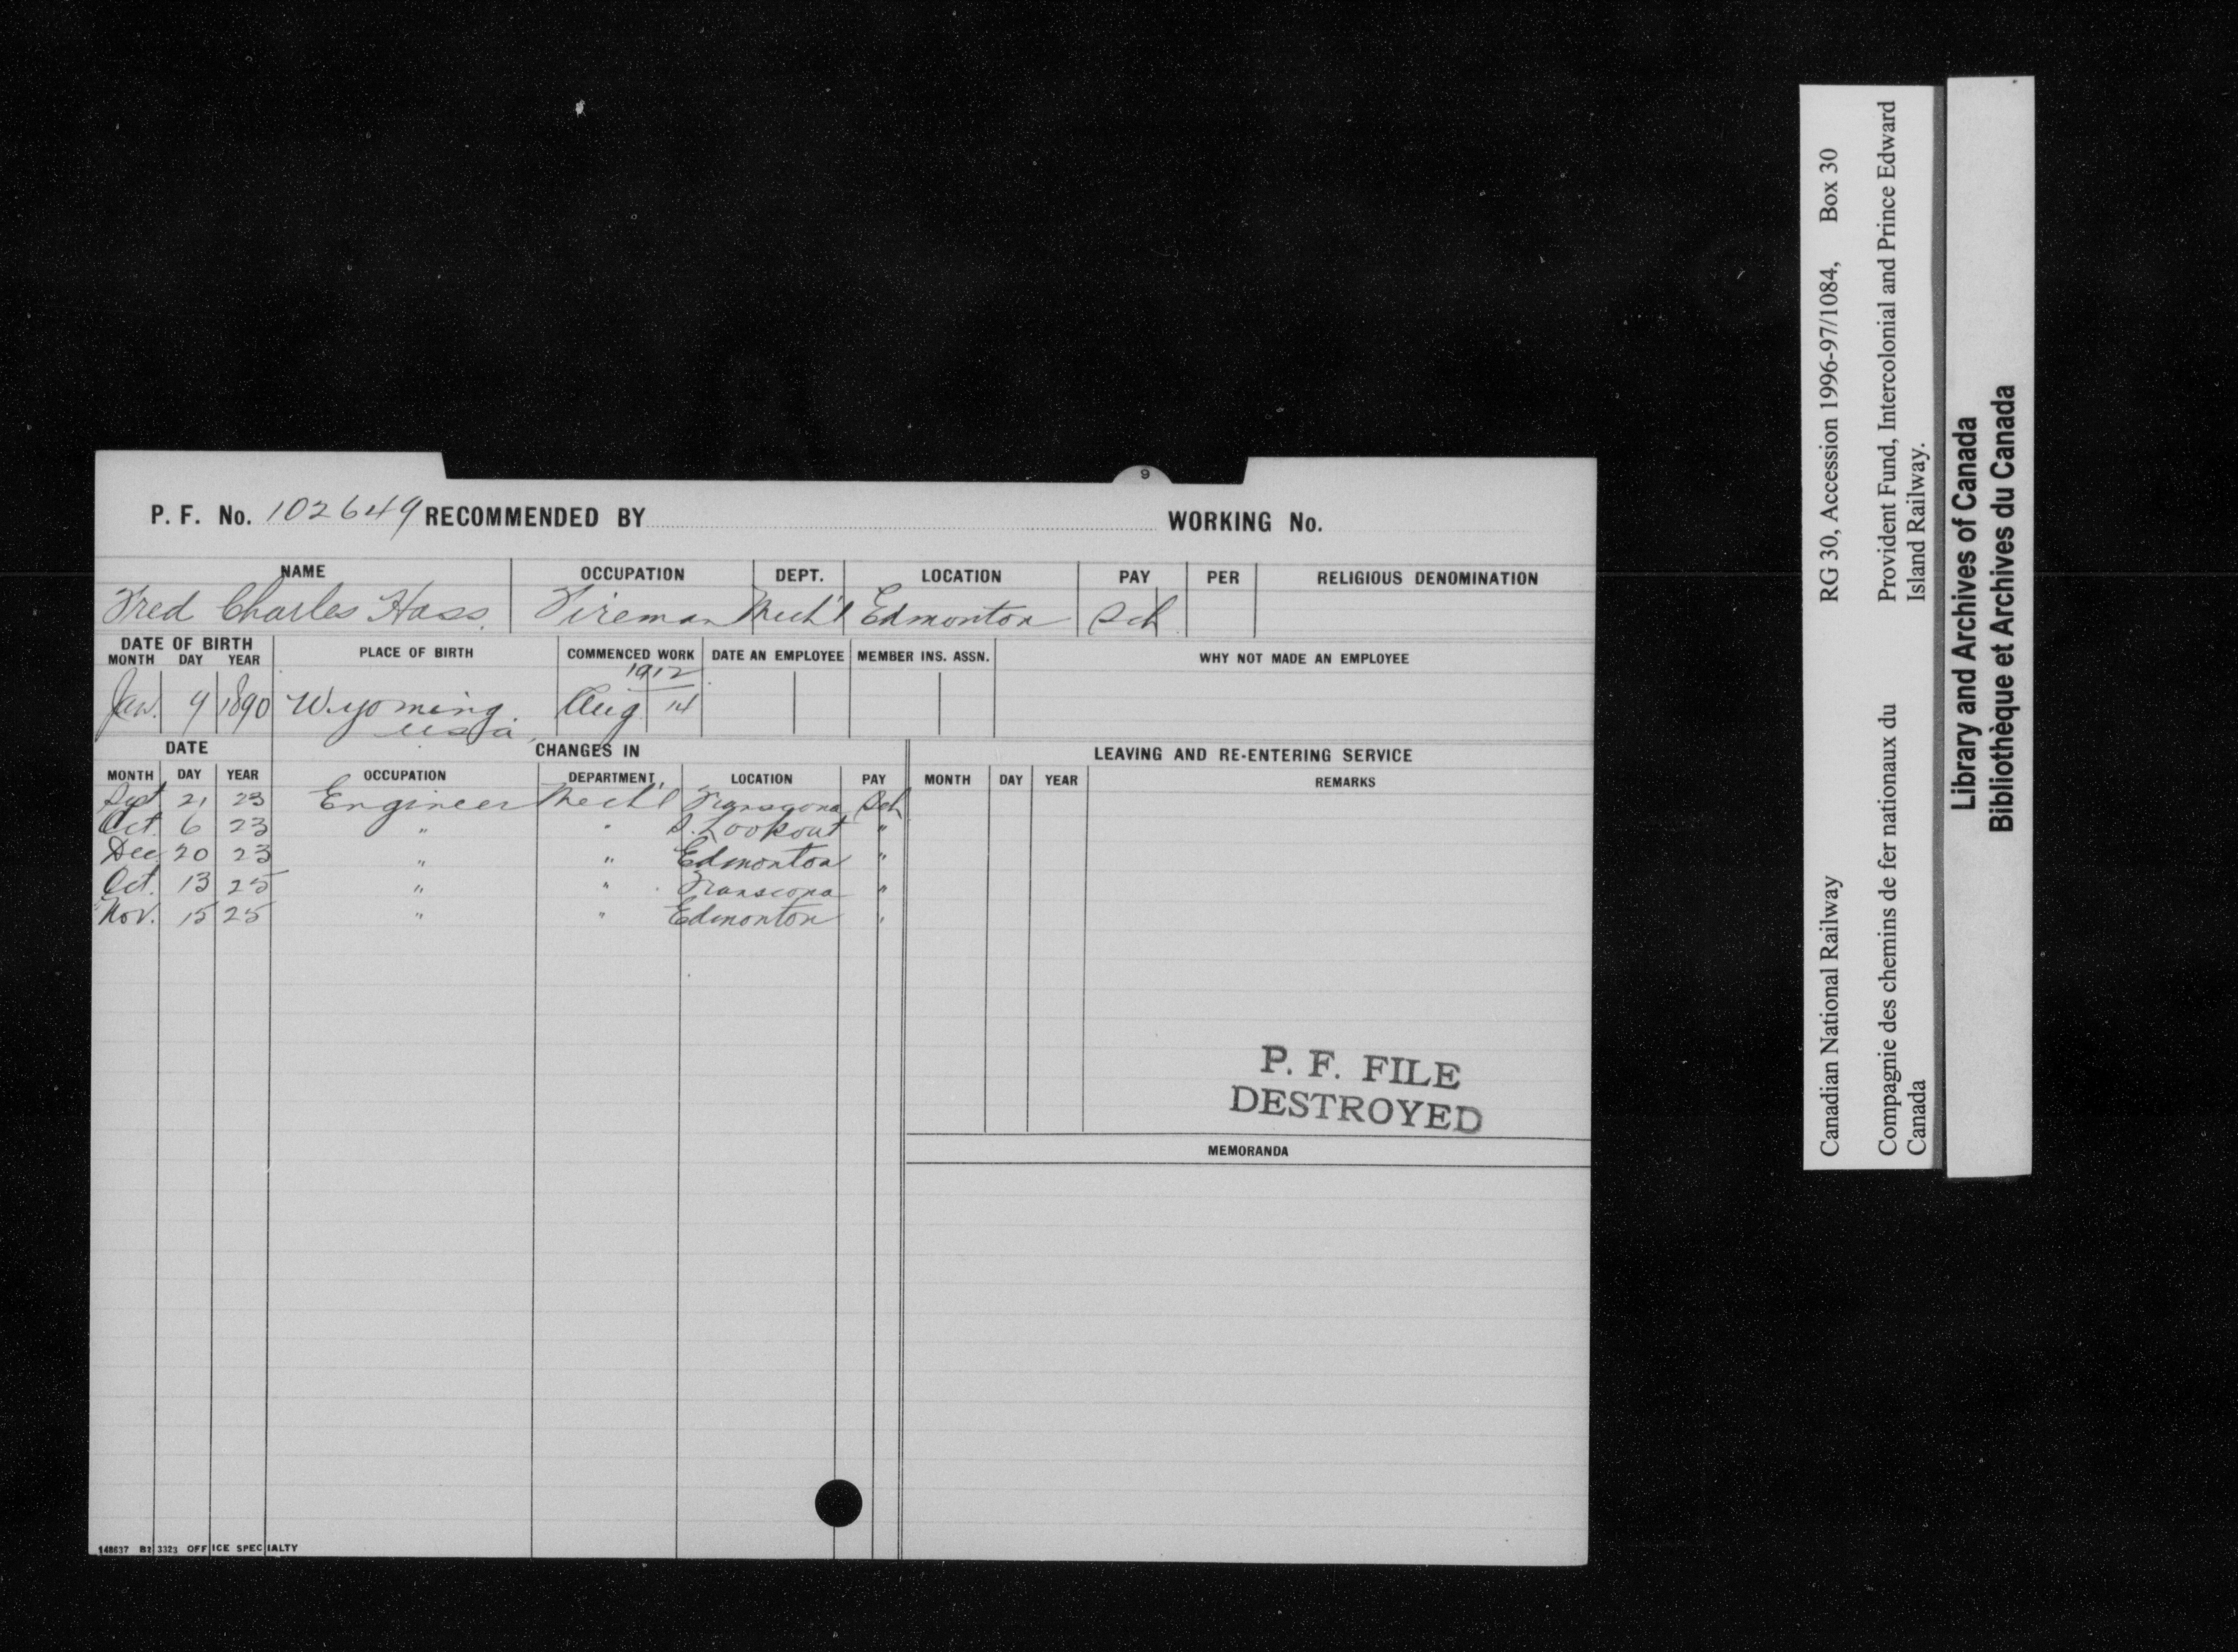 9
P. F. No. 102649 RECOMMENDED BY WORKING No.
NAME OCCUPATION DEPT. LOCATION PAY PER RELIGIOUS DENOMINATION
Fred Charles Hass. Fireman Mech'l Edmonton Sch
DATE OF BIRTH PLACE OF BIRTH COMMENCED WORK DATE AN EMPLOYEE MEMBER INS. ASSN. WHY NOT MADE AN EMPLOYEE
MONTH DAY YEAR
1912
Jan. 9 1890 Wyoming. Aug 14
USA
DATE CHANGES IN LEAVING AND RE-ENTERING SERVICE
MONTH DAY YEAR OCCUPATION DEPARTMENT LOCATION PAY MONTH DAY YEAR REMARKS
Sept. 21 23 Engineer Mech'l Transcona Sch
Oct. 6 23 " " S. Lookout "
Dec 20 23 " " Edmonton "
Oct. 13 25 " " Transcona "
Nov. 15 25 " " Edmonton "
P. F. FILE
DESTROYED
MEMORANDA
148637 B1 3323 OFFICE SPECIALTY
Canadian National Railway RG 30, Accession 1996-97/1084, Box 30
Compagnie des chemins de fer nationaux du Provident Fund, Intercolonial and Prince Edward
Canada Island Railway.
Library and Archives of Canada
Bibliothèque et Archives du Canada